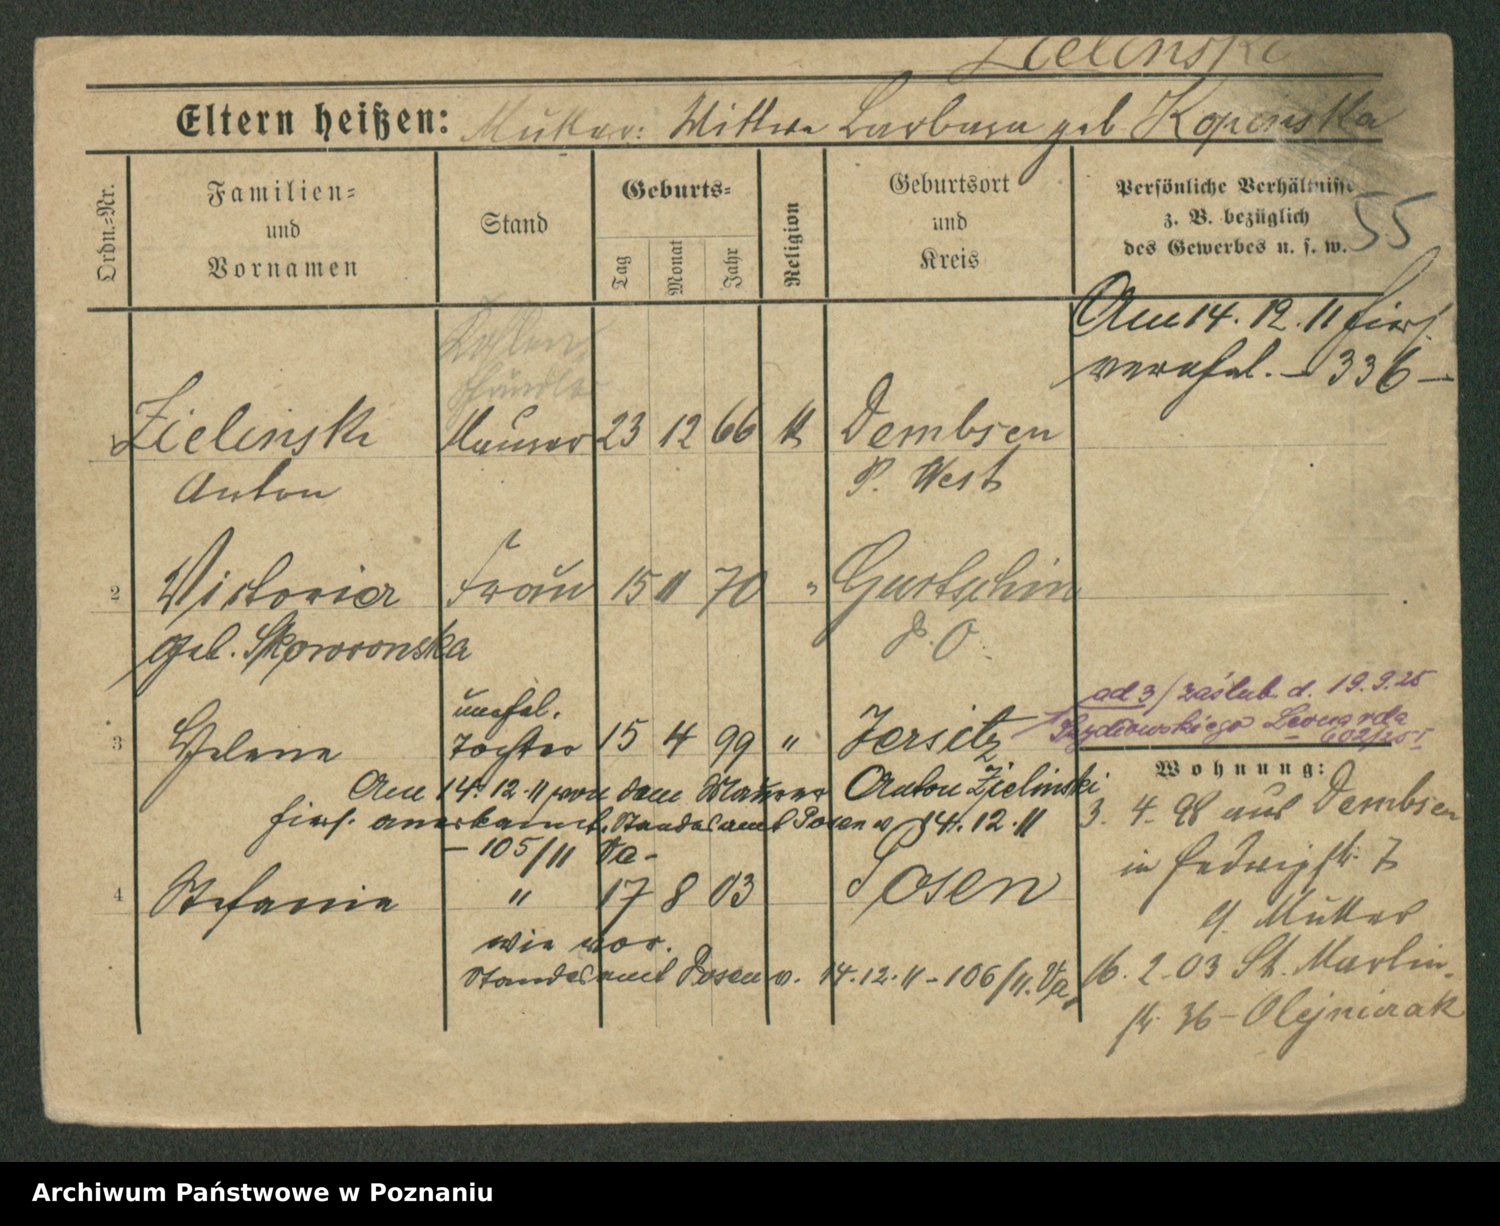 Zielinski
Eltern heißen: Mutter: Wittwe Barbara geb Kopinska
Ordn.=Nr.
Familien=
und
Vornamen
Stand
Geburts=
Tag
Monat
Jahr
Religion
Geburtsort
und
Kreis
Persönliche Verhältnisse
z. B. bezüglich
des Gewerbes u. s. w.
55
Am 14. 12. 11 hies.
verehel. – 336 –
Kohlen
händler
Zielinski Maurer 23 12 66 k Dembsen
Anton P. West
2 Victoria Frau 15 11 70 " Gurtschin
geb. Skowronska P. O.
unehel.
3 Helene Tochter 15 4 99 " Jersitz
ad 3/ zaślub. d. 19.9.25
Leonarda
602/25
Am 14. 12. 11 von dem Maurer Anton Zielinski
hies. anerkannt. Standesamt Posen v. 14. 12. 11
– 105/11 Va –
4 Stefanie " 17 8 03 Posen
wie vor.
Standesamt Posen v. 14. 12. 11 – 106/11. Va
Wohnung:
3. 4. 98 aus Dembsen
in Hedwigstr. 7
q. Mutter
16. 2. 03 St. Martin-
str. 36 – Olejniczak
Archiwum Państwowe w Poznaniu